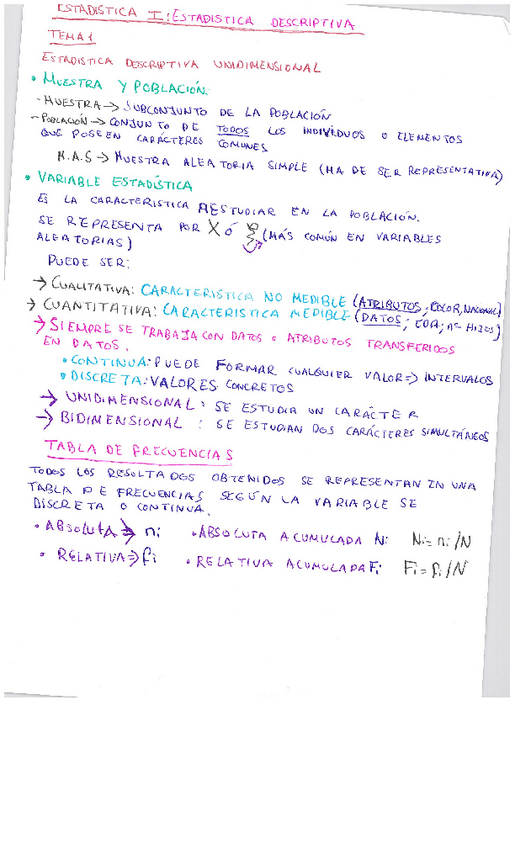 ESTADISTICA I: ESTADISTICA DESCRIPTIVA
TEMA 1
ESTADISTICA DESCRIPTIVA UNIDIMENSIONAL
• MUESTRA Y POBLACIÓN.
- MUESTRA → SUBCONJUNTO DE LA POBLACIÓN
- POBLACIÓN → CONJUNTO DE TODOS LOS INDIVIDUOS O ELEMENTOS
QUE POSEEN CARÁCTERES COMUNES
M.A.S → MUESTRA ALEATORIA SIMPLE (HA DE SER REPRESENTATIVA)
• VARIABLE ESTADÍSTICA
ES LA CARACTERISTICA A ESTUDIAR EN LA POBLACIÓN.
SE REPRESENTA POR X Ó ξ (MÁS COMÚN EN VARIABLES
ALEATORIAS)
PUEDE SER:
→ CUALITATIVA: CARACTERISTICA NO MEDIBLE (ATRIBUTOS; COLOR, NACIONAL)
→ CUANTITATIVA: CARACTERISTICA MEDIBLE (DATOS; EDA; nº HIJOS)
→ SIEMPRE SE TRABAJA CON DATOS O ATRIBUTOS TRANSFERIDOS
EN DATOS.
• CONTINUA: PUEDE FORMAR CUALQUIER VALOR => INTERVALOS
• DISCRETA: VALORES CONCRETOS
→ UNIDIMENSIONAL: SE ESTUDIA UN CARÁCTER
→ BIDIMENSIONAL: SE ESTUDIAN DOS CARÁCTERES SIMULTÁNEOS
TABLA DE FRECUENCIAS
TODOS LOS RESULTADOS OBTENIDOS SE REPRESENTAN EN UNA
TABLA DE FRECUENCIAS SEGÚN LA VARIABLE SE
DISCRETA O CONTINUA.
• ABSOLUTA => ni • ABSOLUTA ACUMULADA Ni Ni = ni/N
• RELATIVA => fi • RELATIVA ACUMULADA Fi Fi = fi/N